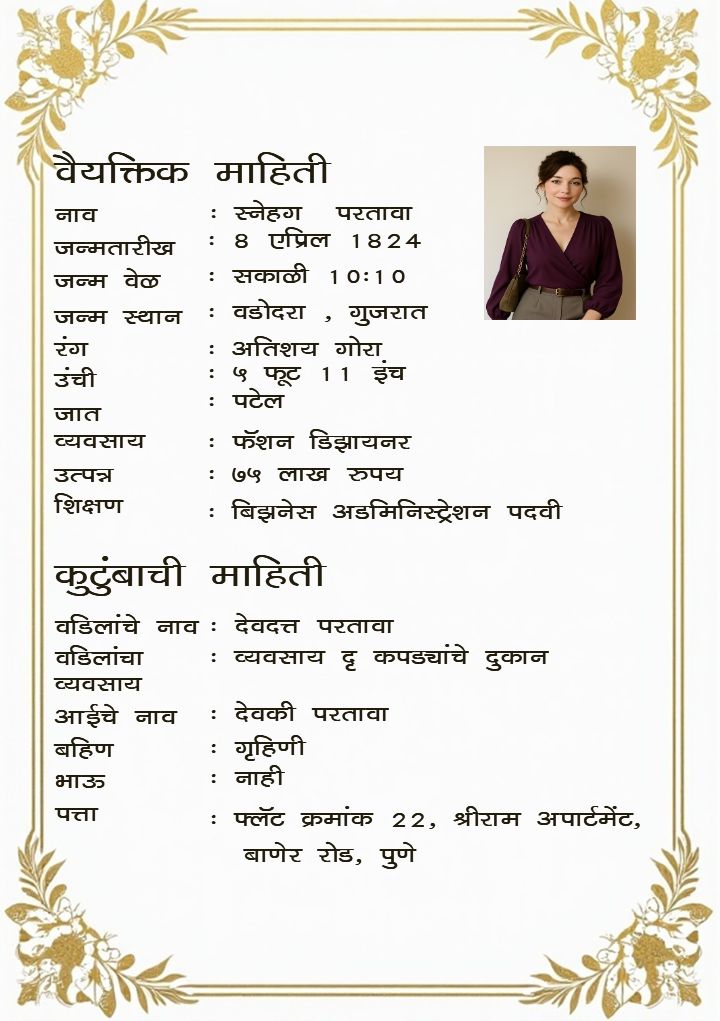 वैयक्तिक माहिती
नाव : स्नेहग परतावा
जन्मतारीख : 8 एप्रिल 1824
जन्म वेळ : सकाळी 10:10
जन्म स्थान : वडोदरा , गुजरात
रंग : अतिशय गोरा
उंची : ५ फूट 11 इंच
जात : पटेल
व्यवसाय : फॅशन डिझायनर
उत्पन्न : ७५ लाख रुपय
शिक्षण : बिझनेस अडमिनिस्ट्रेशन पदवी
कुटुंबाची माहिती
वडिलांचे नाव : देवदत्त परतावा
वडिलांचा : व्यवसाय दृ कपड्यांचे दुकान
व्यवसाय
आईचे नाव : देवकी परतावा
बहिण : गृहिणी
भाऊ : नाही
पत्ता : फ्लॅट क्रमांक 22, श्रीराम अपार्टमेंट,
बाणेर रोड, पुणे